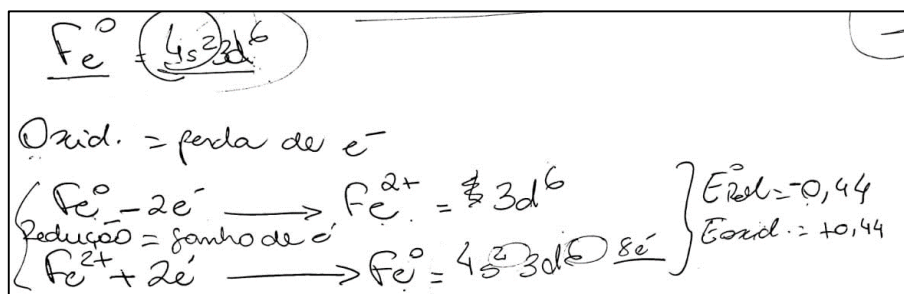 Fe⁰ = 4s² 3d⁶
Oxid. = perda de e⁻
Fe⁰ - 2e⁻ ⟶ Fe²⁺ = 3d⁶
Redução = ganho de é
Fe²⁺ + 2é ⟶ Fe⁰ = 4s² 3d⁶ 8é
E°Red = -0,44
Eoxid. = +0,44